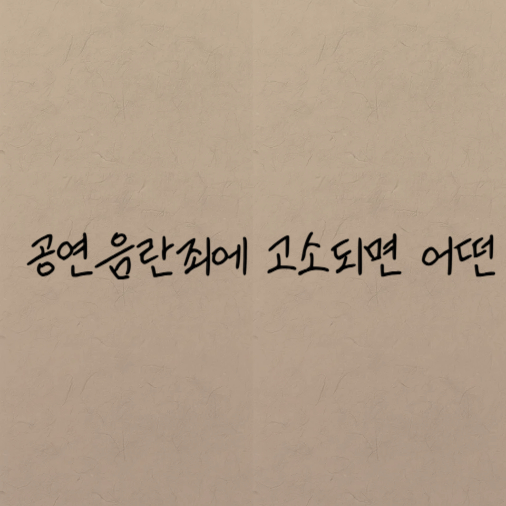 공연음란죄에 고소되면 어떤